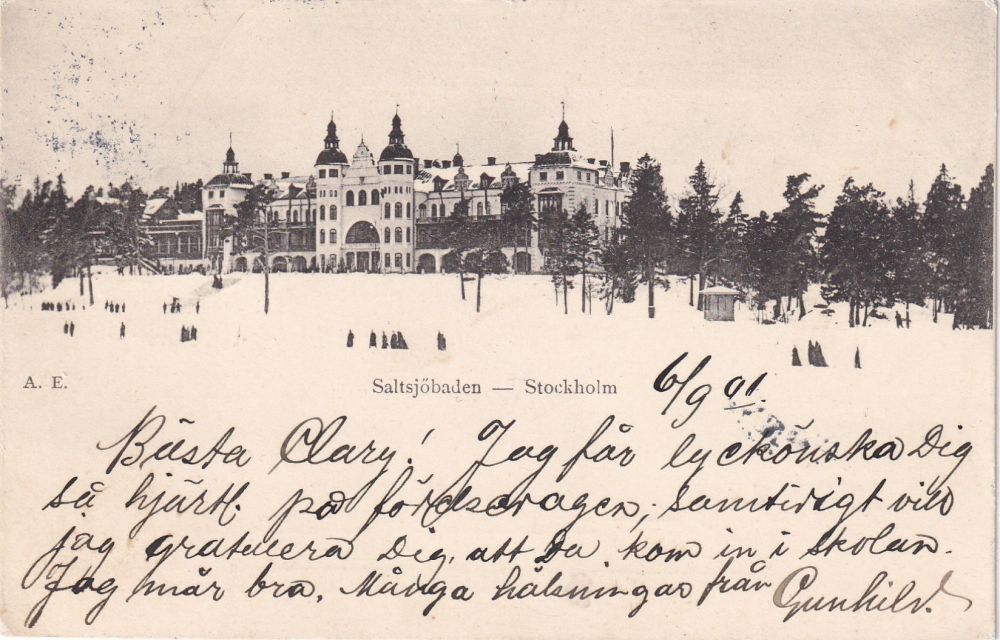 A. E.
Saltsjöbaden — Stockholm
6/9 01.
Bästa Clary! Jag får lyckönska Dig
så hjärtl. på födelsedagen, samtidigt vill
jag gratulera Dig, att Du kom in i skolan.
Jag mår bra. Många hälsningar från Gunhild.